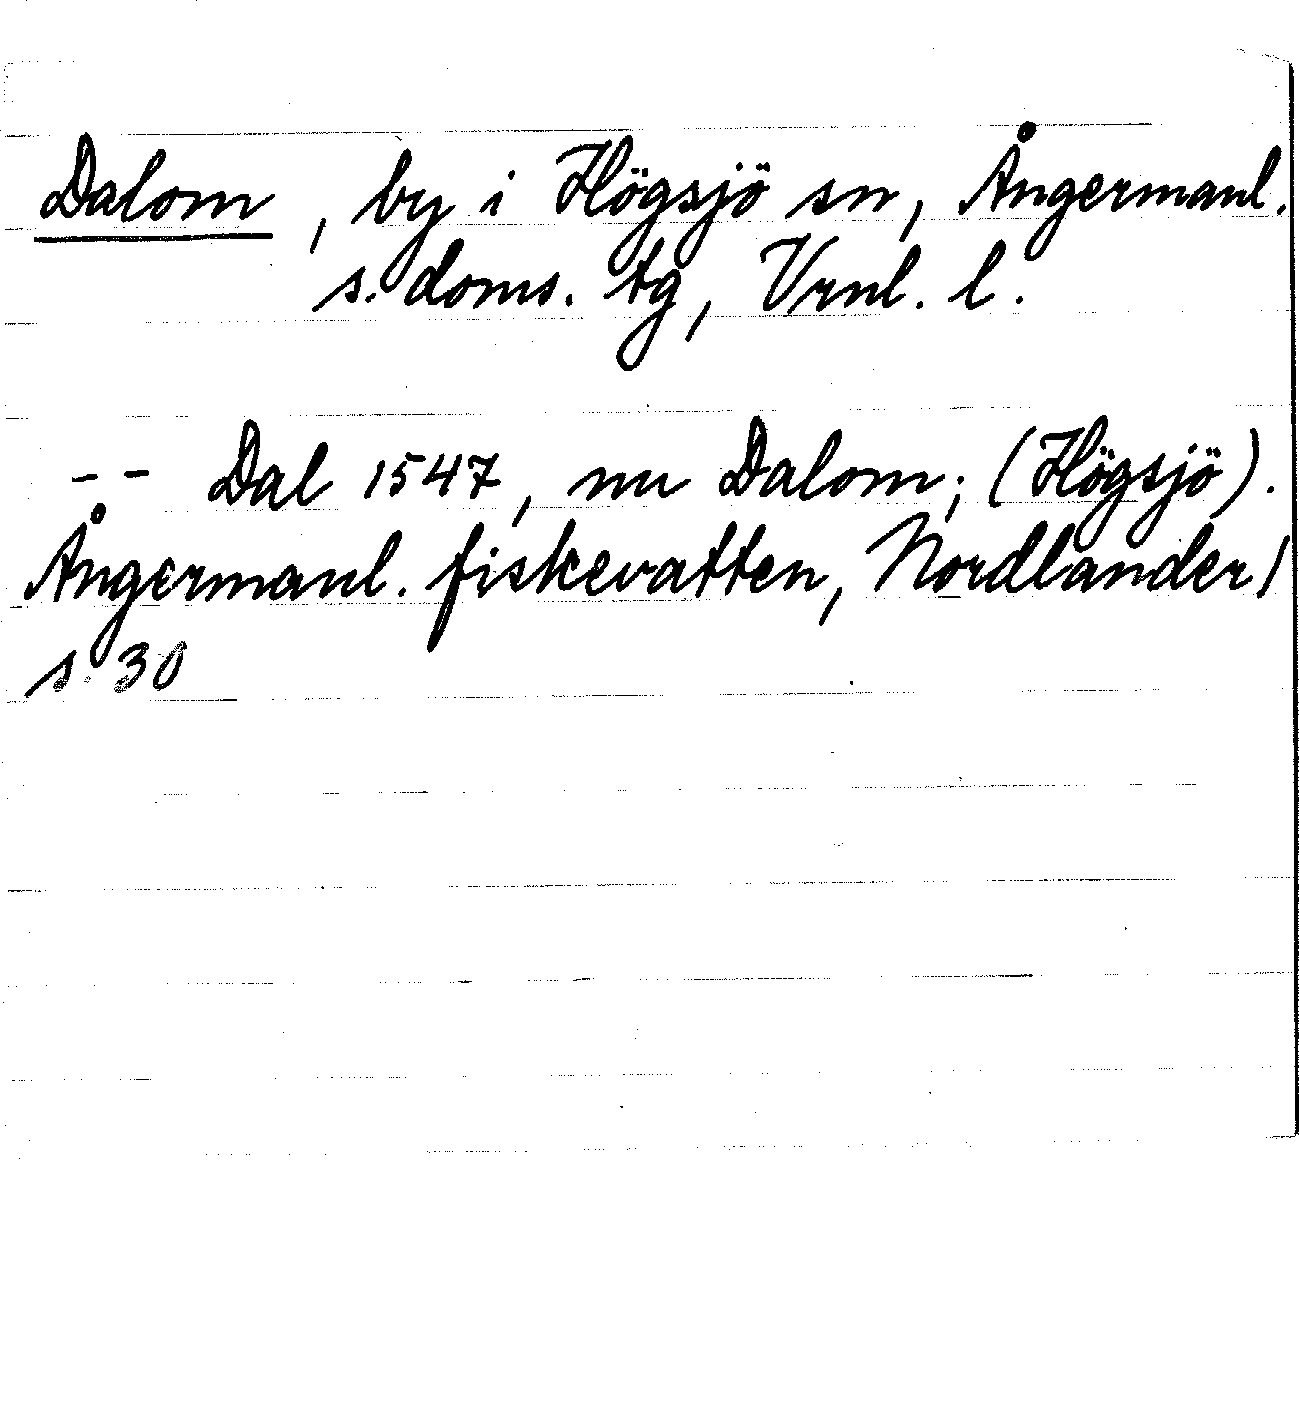 Dalom, by i Högsjö sn, Ångermanl.
s. doms. tg, Vrnl. l.
-- Dal 1547, nu Dalom; (Högsjö).
Ångermanl. fiskevatten, Nordlander/
s. 30